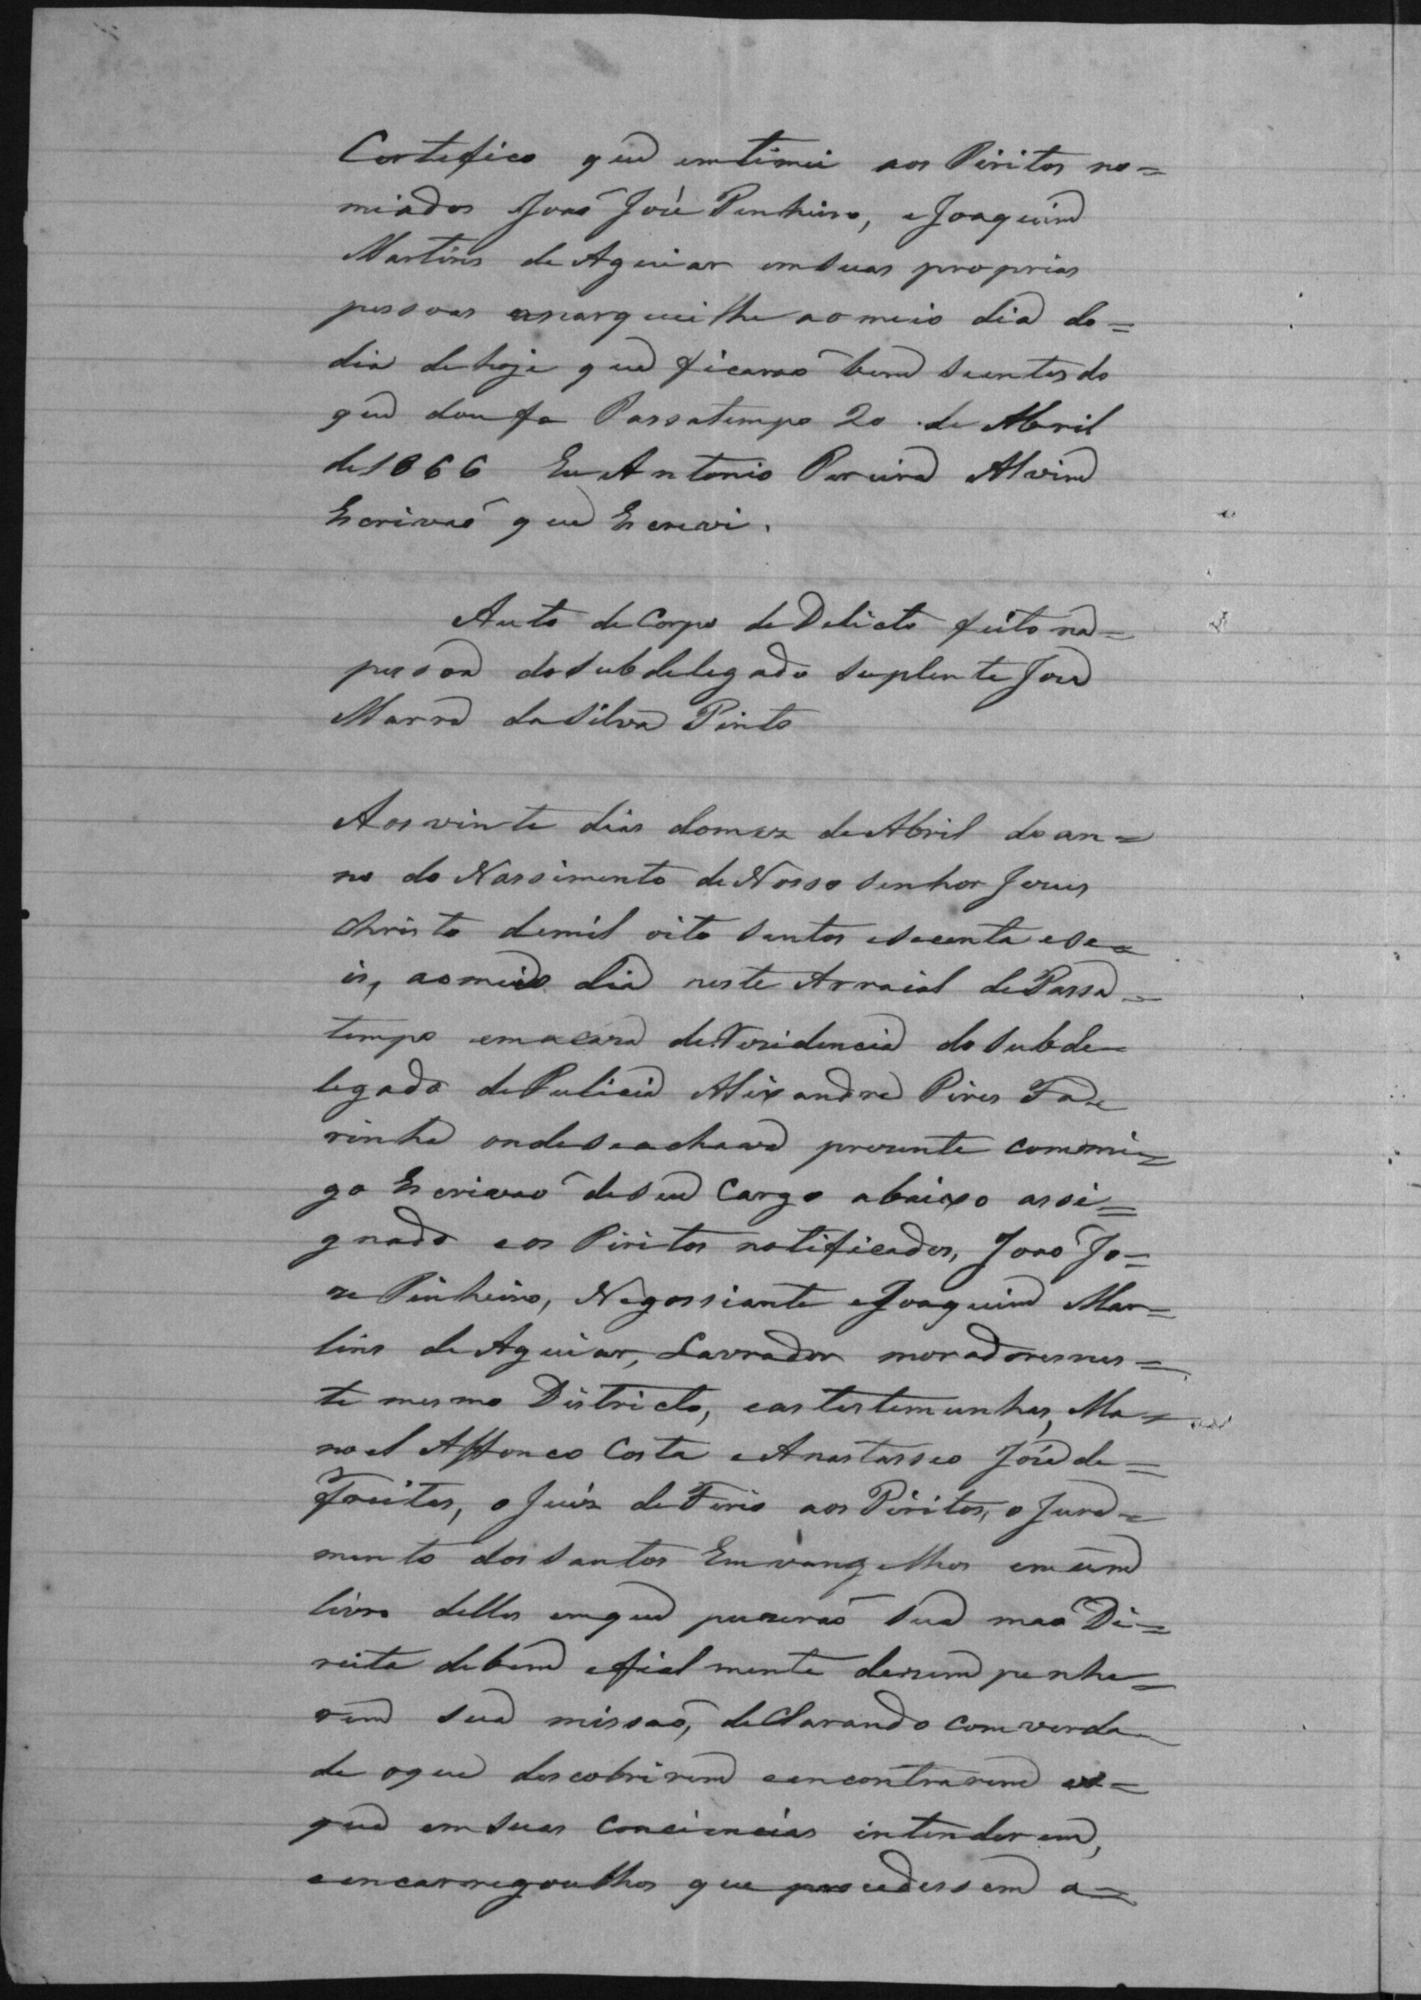 Certefico que emtimei aos Piritos no=
miados João José Pinheiro, e Joaquim
Martins de Aguiar em suas proprias
pessoas emarquei lhe ao meio dia do=
dia de hoje que ficarão bem sientes do
que dou fe Passatempo 20 de Abril
de 1866 Eu Antonio Pereira Alvim
Escrivaõ que Escrevi.
Auto de Corpo de Delicto feito na=
pessoa do Subdelegado Suplente José
Marra da Silva Pinto
Aos vinte dias do mez de Abril do an=
no do Nassimento de Nosso Senhor Jesus
Christo de mil oito Sentos e Secenta e Se=
is, ao meio dia neste Arraial de Passa=
tempo em a casa de Residencia do Subde=
legado de Pulicia Alixandre Pires Fa=
rinha onde Se achava prezente commi=
go Escrivaõ de Seu Cargo abaixo assi=
gnado e os Piritos notificados, João Jo=
ze Pinheiro, Negossiante e Joaquim Mar=
tins de Aguiar, Lavrador moradores nes=
te mesmo Districto, e as testemunhas, Ma=
noel Affonco Costa e Anastasseo José de=
Freitas, o Juiz deferio aos Piritos, o Jura=
mento dos Santos Emvangelhos em um
livro delles em que puzeraõ Sua maõ Di=
reita de bem e fiel mente dezempenha=
rem Sua missaõ, declarando com verda=
de o que descobrirem e encontrarem eo=
que em Suas Conciencias intenderem,
e encarregou lhos que procedessem a=